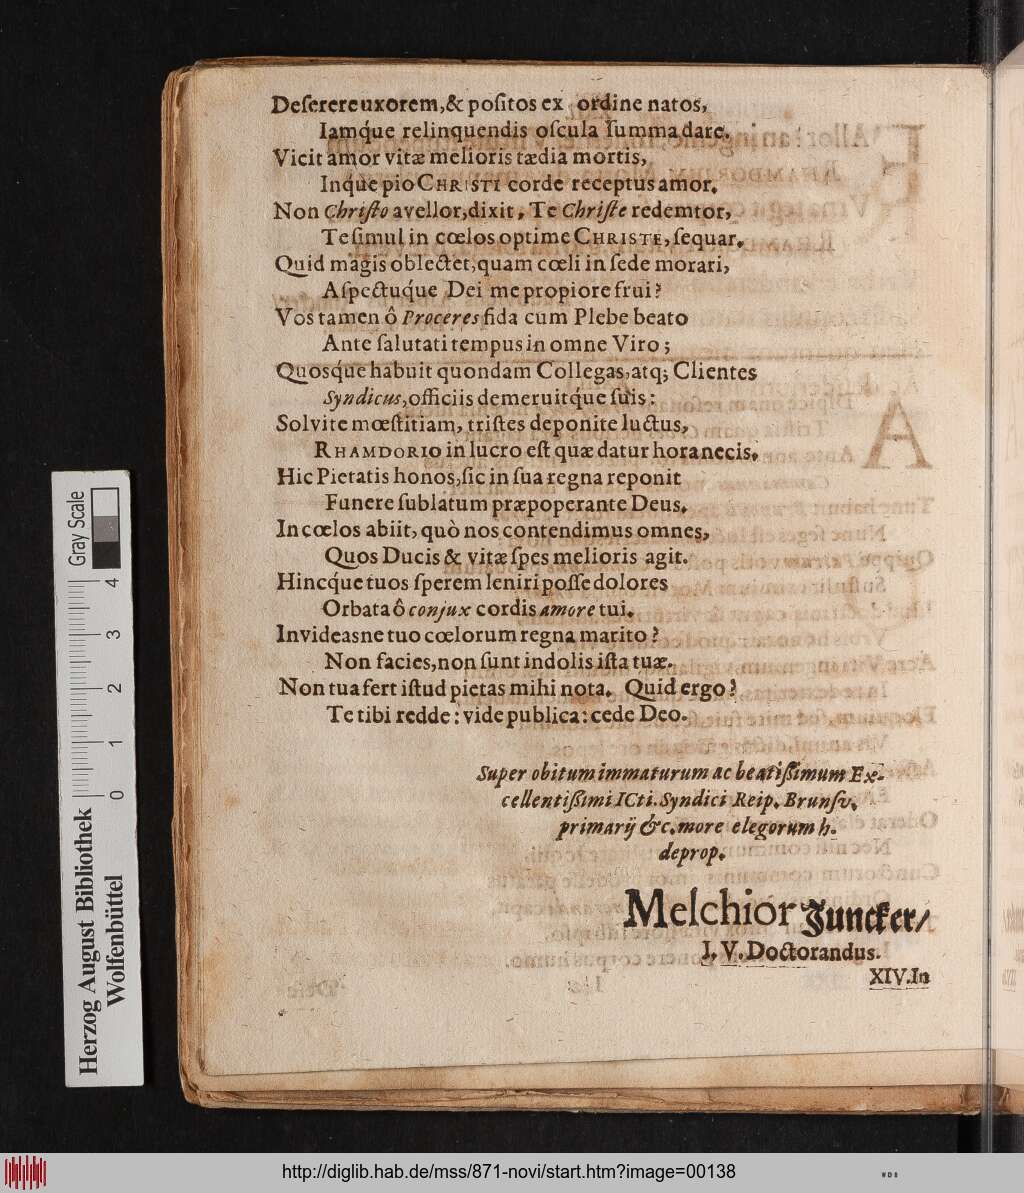 Deſerere uxorem, & poſitos ex ordine natos,
Iamq́ue relinquendis oſcula ſumma dare.
Vicit amor vitæ melioris tædia mortis,
Inq́ue pio CHRISTI corde receptus amor.
Non Chriſto avellor, dixit, Te Chriſte redemtor,
Te ſimul in cœlos optime CHRISTE, ſequar.
Quid magis oblectet, quam cœli in ſede morari,
Aſpectuq́ue Dei me propiore frui?
Vos tamen ô Proceres fida cum Plebe beato
Ante ſalutati tempus in omne Viro;
Quosq́ue habuit quondam Collegas, atq; Clientes
Syndicus, officiis demeruitq́ue ſuis:
Solvite mœſtitiam, triſtes deponite luctus,
RHAMDORIO in lucro eſt quæ datur hora necis.
Hic Pietatis honos, ſic in ſua regna reponit
Funere ſublatum præpoperante Deus.
In cœlos abiit, quò nos contendimus omnes,
Quos Ducis & vitæ ſpes melioris agit.
Hincque tuos ſperem leniri poſſe dolores
Orbata ô conjux cordis amore tui.
Invideasne tuo cœlorum regna marito?
Non facies, non ſunt indolis iſta tuæ.
Non tua fert iſtud pietas mihi nota. Quid ergo?
Te tibi redde: vide publica: cede Deo.
Super obitum immaturum ac beatiſſimum Ex-
cellentiſſimi ICti. Syndici Reip. Brunſv.
primarij &c. more elegorum h.
deprop.
Melchior Juncker/
I. V. Doctorandus.
XIV. In
Gray Scale
4
3
2
1
0
Herzog August Bibliothek
Wolfenbüttel
http://diglib.hab.de/mss/871-novi/start.htm?image=00138